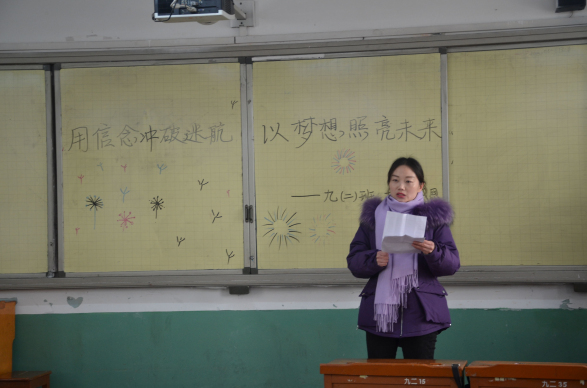 用信念冲破迷航 以梦想照亮未来
——九(二)班
九二
九二